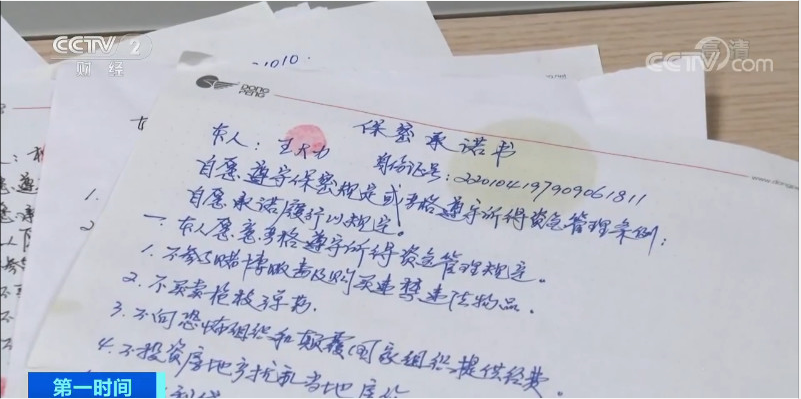 CCTV 2
财经
高清
CCTV.com
1010.
保密承诺书
本人：王大力 身份证号：220104197909061811
自愿遵守保密规定或严格遵守所得资金管理条例；
自愿承诺履行以规定。
一.本人愿意严格遵守所得资金管理规定。
1.不参与赌博吸毒及购买违禁违法物品.
2.不买卖枪枝弹药.
3.不向恐怖组织和颠覆国家组织提供经费。
4.不投资房地产扰乱当地房价
第一时间